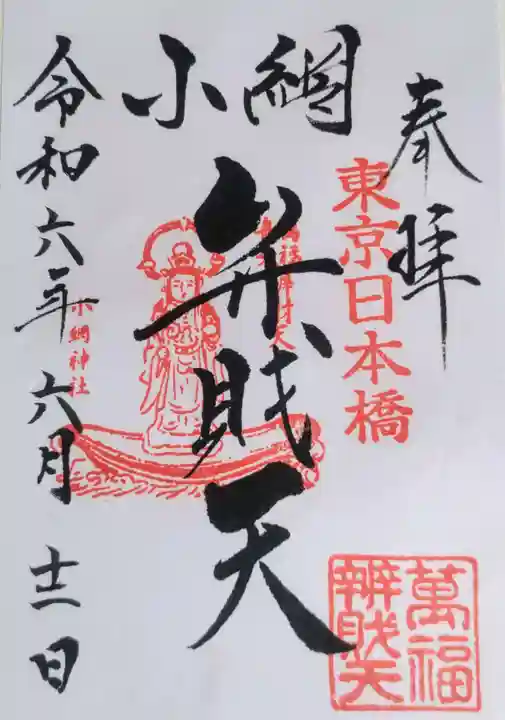 奉拝
東京日本橋
小網
弁財天
令和六年六月十二日
小網神社
萬福
辨財天